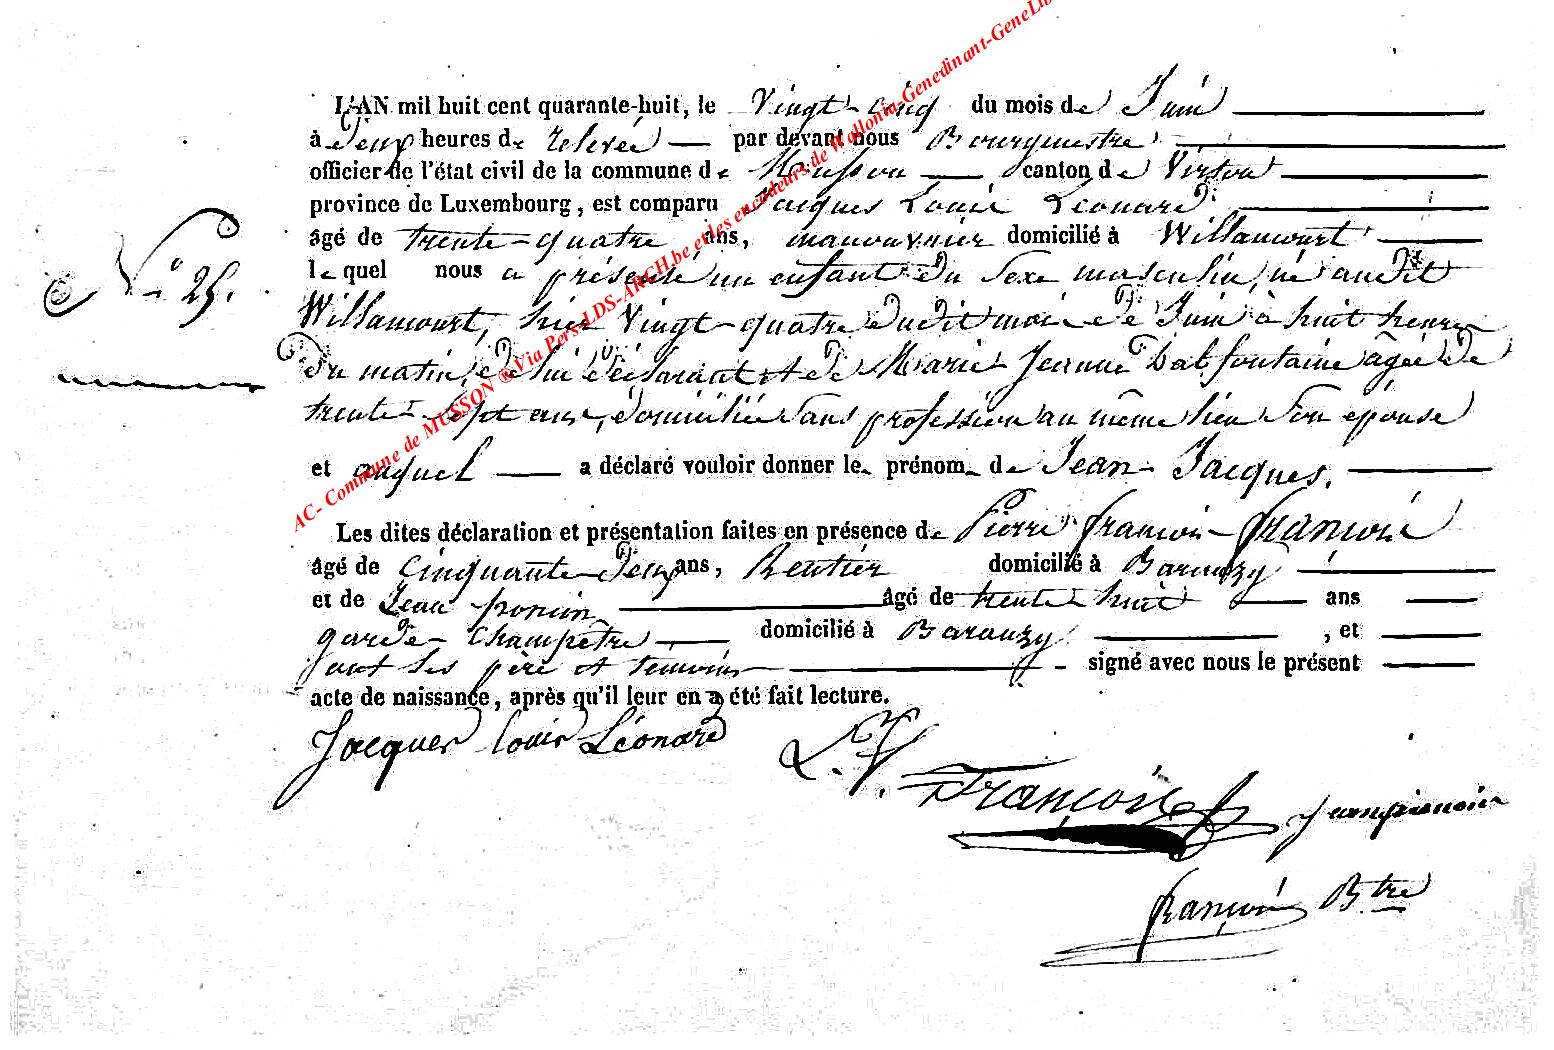 L'AN mil huit cent quarante-huit, le Vingt-cinq du mois de Juin
à deux heures de relevée par devant nous Bourgmestre
officier de l'état civil de la commune de Musson canton de Virton
province de Luxembourg, est comparu Jacques Louis Léonard
âgé de trente-quatre ans, manouvrier domicilié à Willancourt
N° 25.
le quel nous a présenté un enfant du sexe masculin, né audit
Willancourt, hier Vingt-quatre dudit mois de Juin à huit heures
du matin, de lui déclarant et de Marie Jeanne Dalfontaine âgée de
trente-sept ans, domiciliée sans profession au même lieu son épouse
et auquel a déclaré vouloir donner le prénom de Jean-Jacques.
Les dites déclaration et présentation faites en présence de Pierre françois-françois
âgé de cinquante-deux ans, Rentier domicilié à Baranzy
et de Jean âgé de trente-huit ans
garde-champêtre domicilié à Baranzy, et
ont les père et témoins signé avec nous le présent
acte de naissance, après qu'il leur en a été fait lecture.
Jacques louis Léonard
François
françois Btre
AC- Commune de MUSSON ® Via Pers-LDS-ARCH.be et les encodeurs de Wallonia-Genedinant-GeneLib